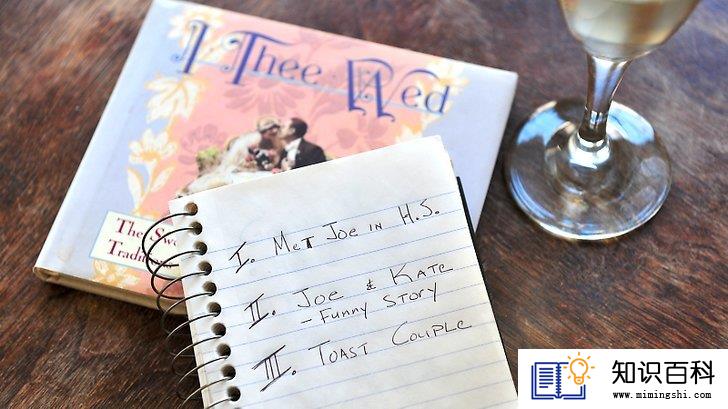 I Thee Wed
The Sw
Traditi
I. Met Joe in H.S.
II. Joe & Kate
- Funny Story
III. Toast Couple
知识百科
www.mimingshi.com